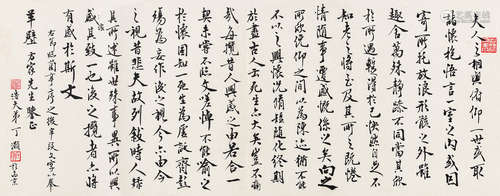 夫人之相與俯仰一世或取
諸懷抱悟言一室之內或因
寄所託放浪形骸之外雖
趣舍萬殊靜躁不同當其欣
於所遇蹔得於己怏然自足不
知老之將至及其所之既惓
情隨事遷感慨係之矣向之
所欣俛仰之間以為陳迹猶
不以之興懷況脩短隨化終期
於盡古人云死生亦大矣豈不痛
哉每攬昔人興感之由若合一
契未嘗不臨文嗟悼不能喻之
於懷固知一死生為虛誕齊彭
殤為妄作後之視今亦由今
之視昔悲夫故列敘時人錄
其所述雖世殊事異所以興
感其致一也後之攬者亦將
有感於斯文
右節臨蘭亭序之後半段文字以奉
方家先生鑒正
弟丁灝